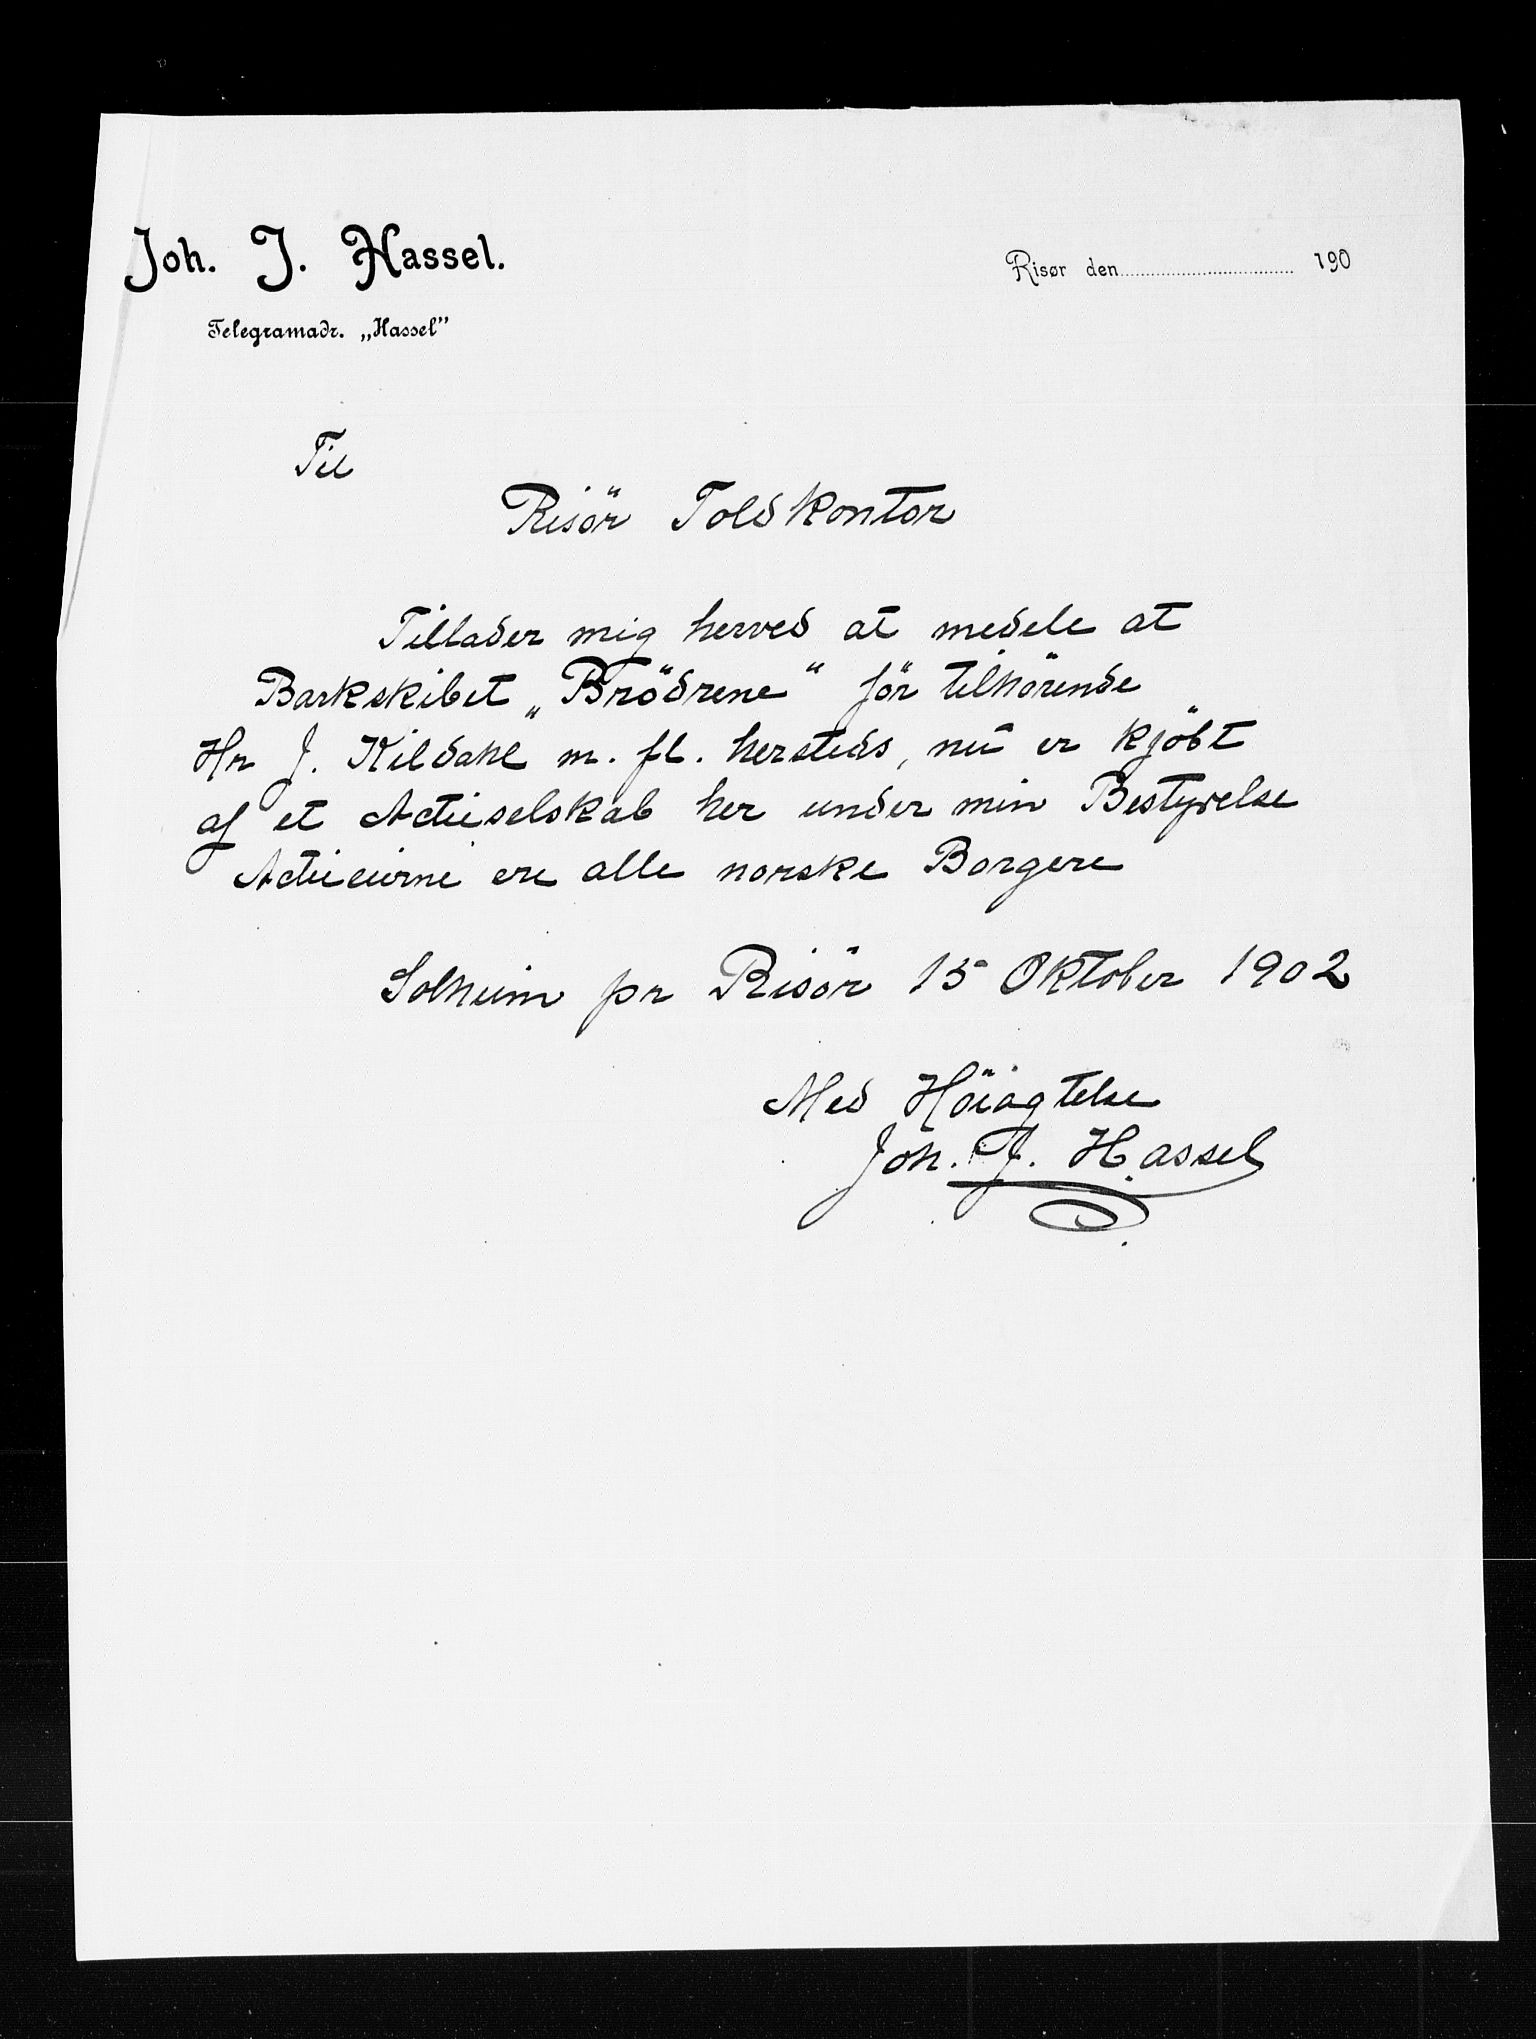 Joh. J. Hassel.
Risør den.............................. 190
Telegramadr. „Hassel”
Til
Risör Toldkontor
Tillader mig herved at medele at
Barkskibet „Brödrene“ för tilhörende
Hr J. Kildahl m. fl. hersteds, nu er kjöbt
af et Actieselskab her under min Bestyrelse
Actieeierne ere alle norske Borgere
Solheim pr Risör 15 Oktober 1902
Med Höiagtelse
Joh. J. Hassel